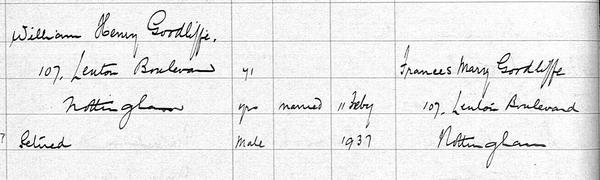 William Henry Goodliffe,
107, Lenton Boulevard 71 Frances Mary Goodliffe
Nottingham yrs married 11 Feby 107, Lenton Boulevard
Retired Male 1937 Nottingham